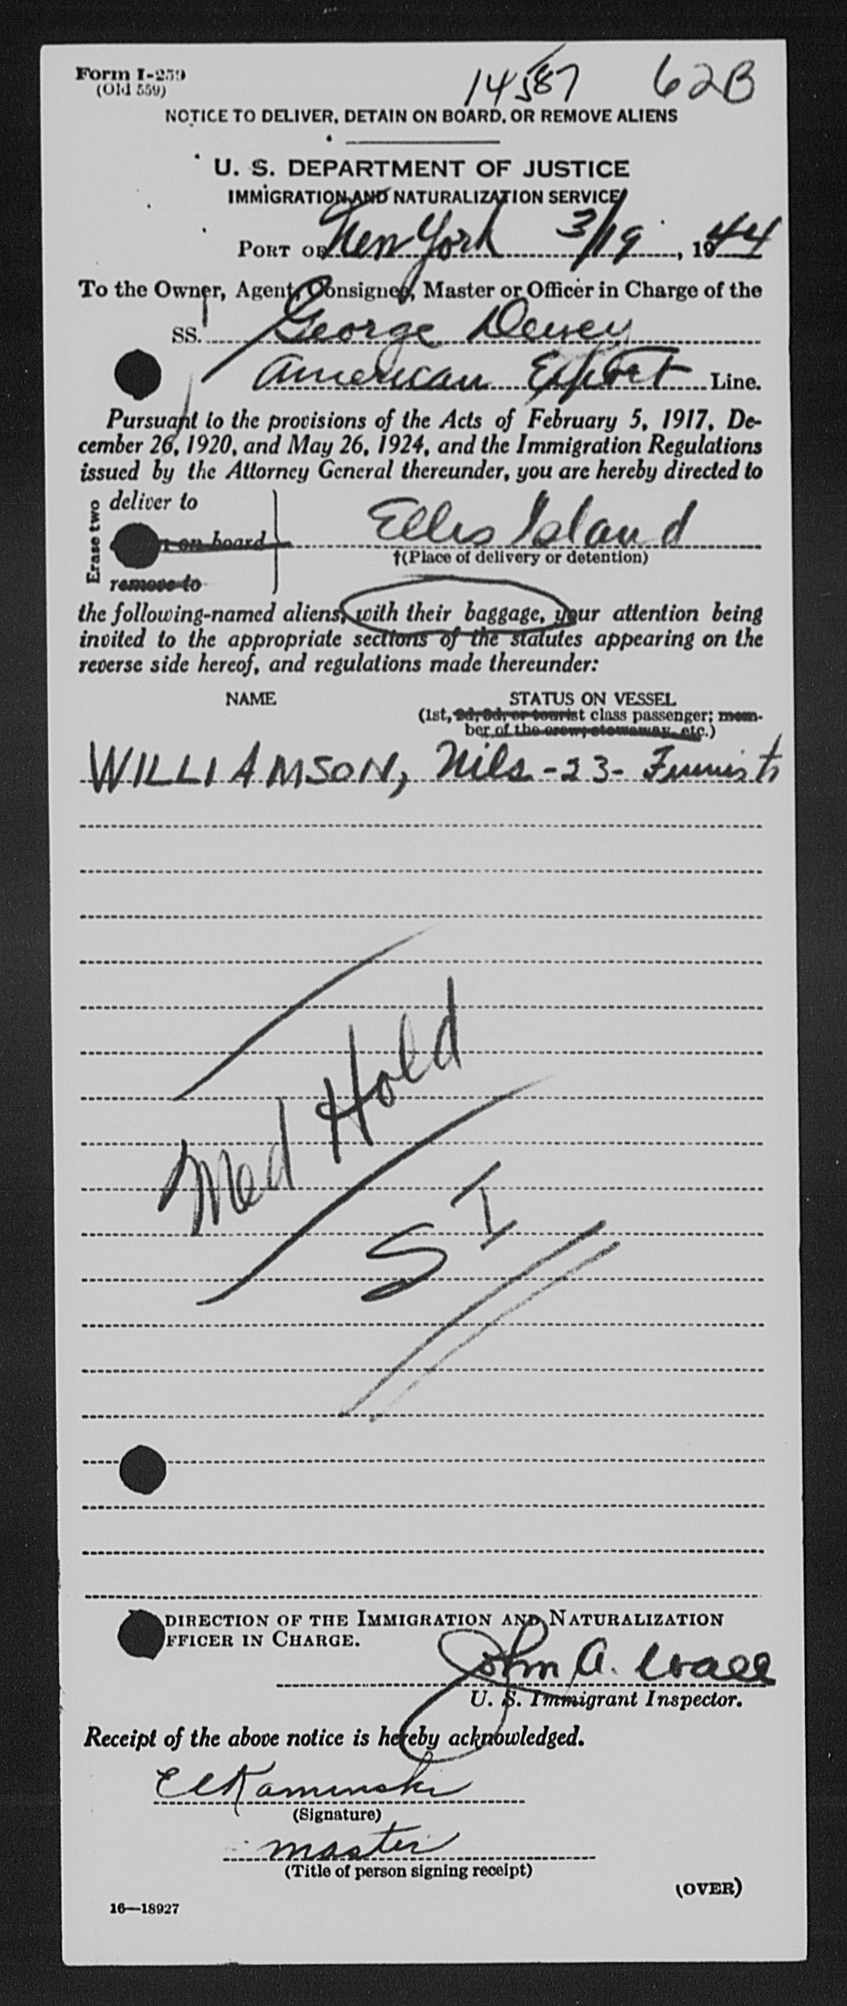 Form I-259
(Old 559)
14587 62B
NOTICE TO DELIVER, DETAIN ON BOARD, OR REMOVE ALIENS
U. S. DEPARTMENT OF JUSTICE
IMMIGRATION AND NATURALIZATION SERVICE
PORT OF New York 3/19, 1944
To the Owner, Agent, Consignee, Master or Officer in Charge of the
SS. George Dewey
American Export Line.
Pursuant to the provisions of the Acts of February 5, 1917, De-
cember 26, 1920, and May 26, 1924, and the Immigration Regulations
issued by the Attorney General thereunder, you are hereby directed to
Erase two
deliver to
on board
remove to
Ellis Island
†(Place of delivery or detention)
the following-named aliens, with their baggage, your attention being
invited to the appropriate sections of the statutes appearing on the
reverse side hereof, and regulations made thereunder:
NAME STATUS ON VESSEL
(1st, 2d, 3d, or tourist class passenger; mem-
ber of the crew, stowaway, etc.)
WILLIAMSON, Nils - 23 -
Med Hold
SI
DIRECTION OF THE IMMIGRATION AND NATURALIZATION
FFICER IN CHARGE.
John A. Wall
U. S. Immigrant Inspector.
Receipt of the above notice is hereby acknowledged.
Kaminski
(Signature)
master
(Title of person signing receipt)
(OVER)
16—18927